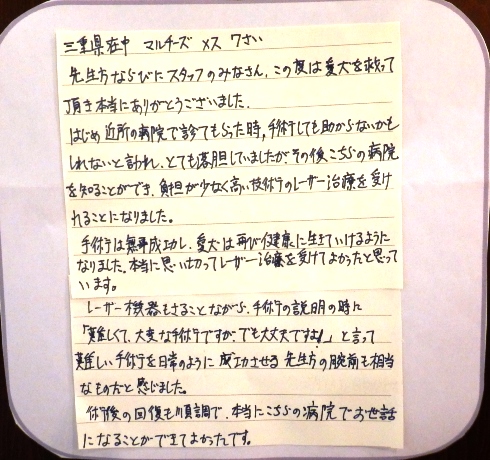 三重県在中 マルチーズ メス 7さい
先生方ならびにスタッフのみなさん、この度は愛犬を救って
頂き本当にありがとうございました。
はじめ近所の病院で診てもらった時、手術しても助からないかも
しれないと言われ、とても落胆していましたが、その後こちらの病院
を知ることができ、負担が少なく高い技術のレーザー治療を受け
れることになりました。
手術は無事成功し、愛犬は再び健康に生きていけるように
なりました。本当に思い切ってレーザー治療を受けてよかったと思って
います。
レーザー機器もさることながら、手術の説明の時に
「難しくて、大変な手術ですが、でも大丈夫ですよ!」と言って
難しい手術を日常のように成功させる先生方の腕前も相当
なものだと感じました。
術後の回復も順調で、本当にこちらの病院でお世話
になることができてよかったです。